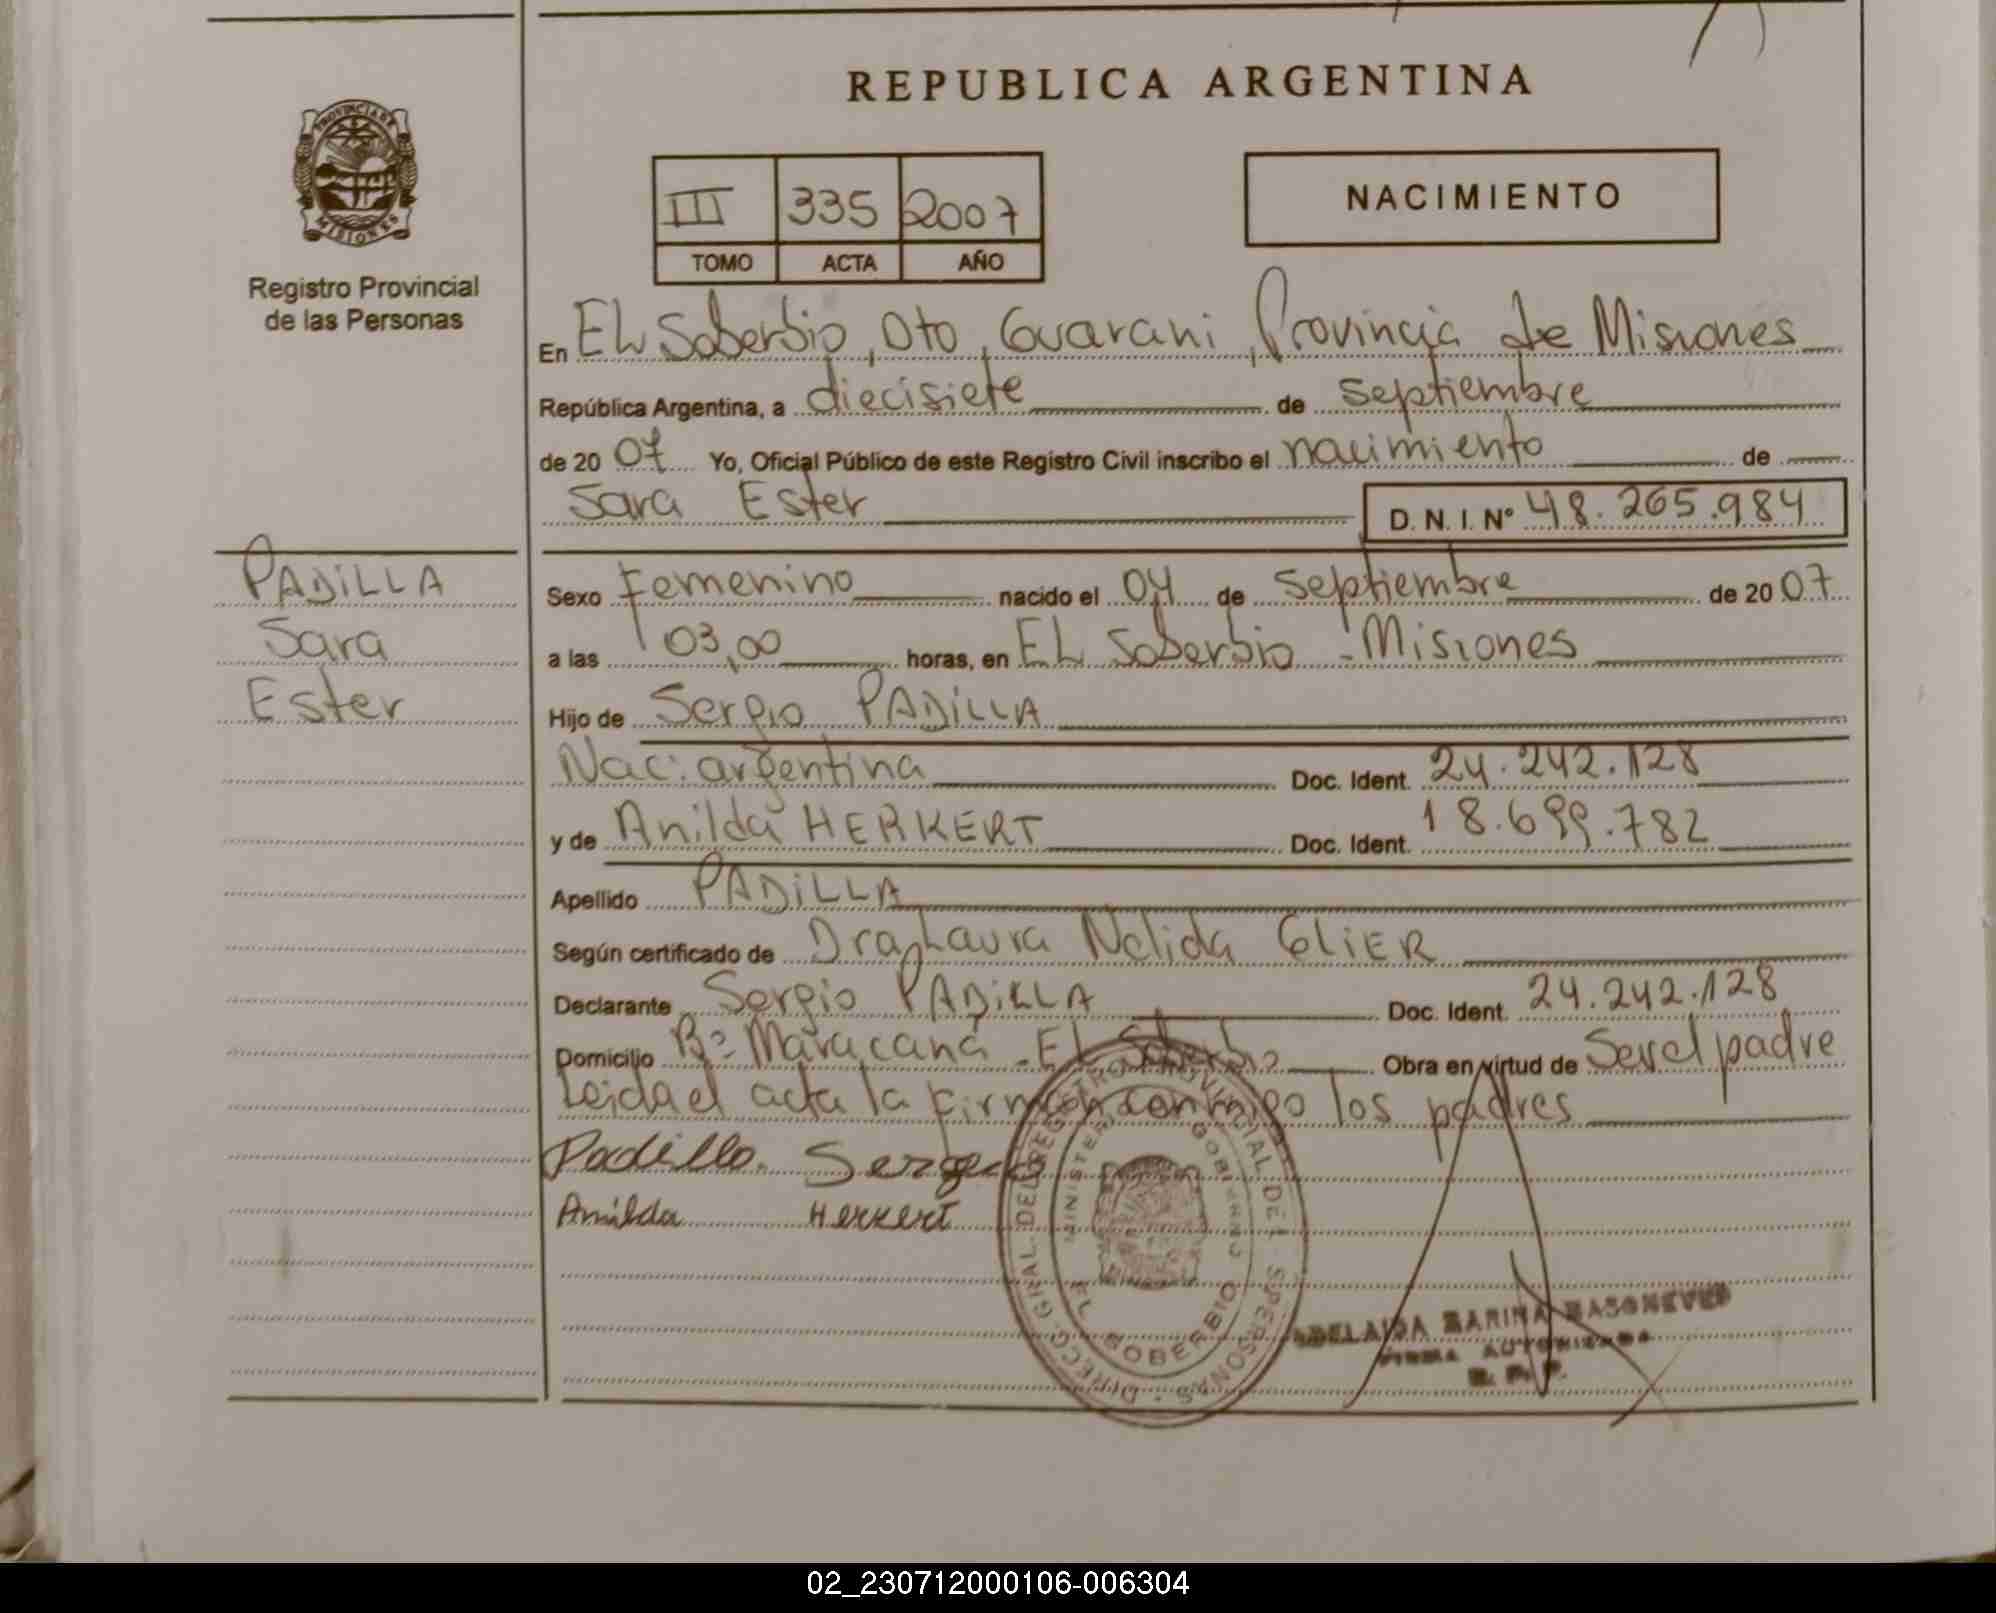 REPUBLICA ARGENTINA
PROVINCIA DE MISIONES
Registro Provincial
de las Personas
III 335 2007
TOMO ACTA AÑO
NACIMIENTO
En El Soberbio, Dto, Guarani, Provincia de Misiones
República Argentina, a diecisiete de septiembre
de 2007 Yo, Oficial Público de este Registro Civil inscribo el nacimiento de
Sara Ester D. N. I. Nº 48.265.984
PADiLLA
Sara
Ester
Sexo Femenino nacido el 04 de Septiembre de 2007
a las 03,00 horas, en El Soberbio - Misiones
Hijo de Sergio PADiLLA
Nac: argentina Doc. Ident. 24.242.128
y de Anilda HERKERT Doc. Ident. 18.699.782
Apellido PADiLLA
Según certificado de Dra, Laura Nelida GLiER
Declarante Sergio PADiLLA Doc. Ident. 24.242.128
Domicilio Bº Maracaná - El Soberbio Obra en virtud de Ser el padre
Leida el acta la firman conmigo los padres
Padilla Sergio
Anilda Herkert
DIRECC. GRAL. DEL REGISTRO PROVINCIAL DE PERSONAS
MINISTERIO GOBIERNO
EL SOBERBIO
ADELAIDA MARINA
FIRMA AUTORIZADA
R. P. P.
02_230712000106-006304